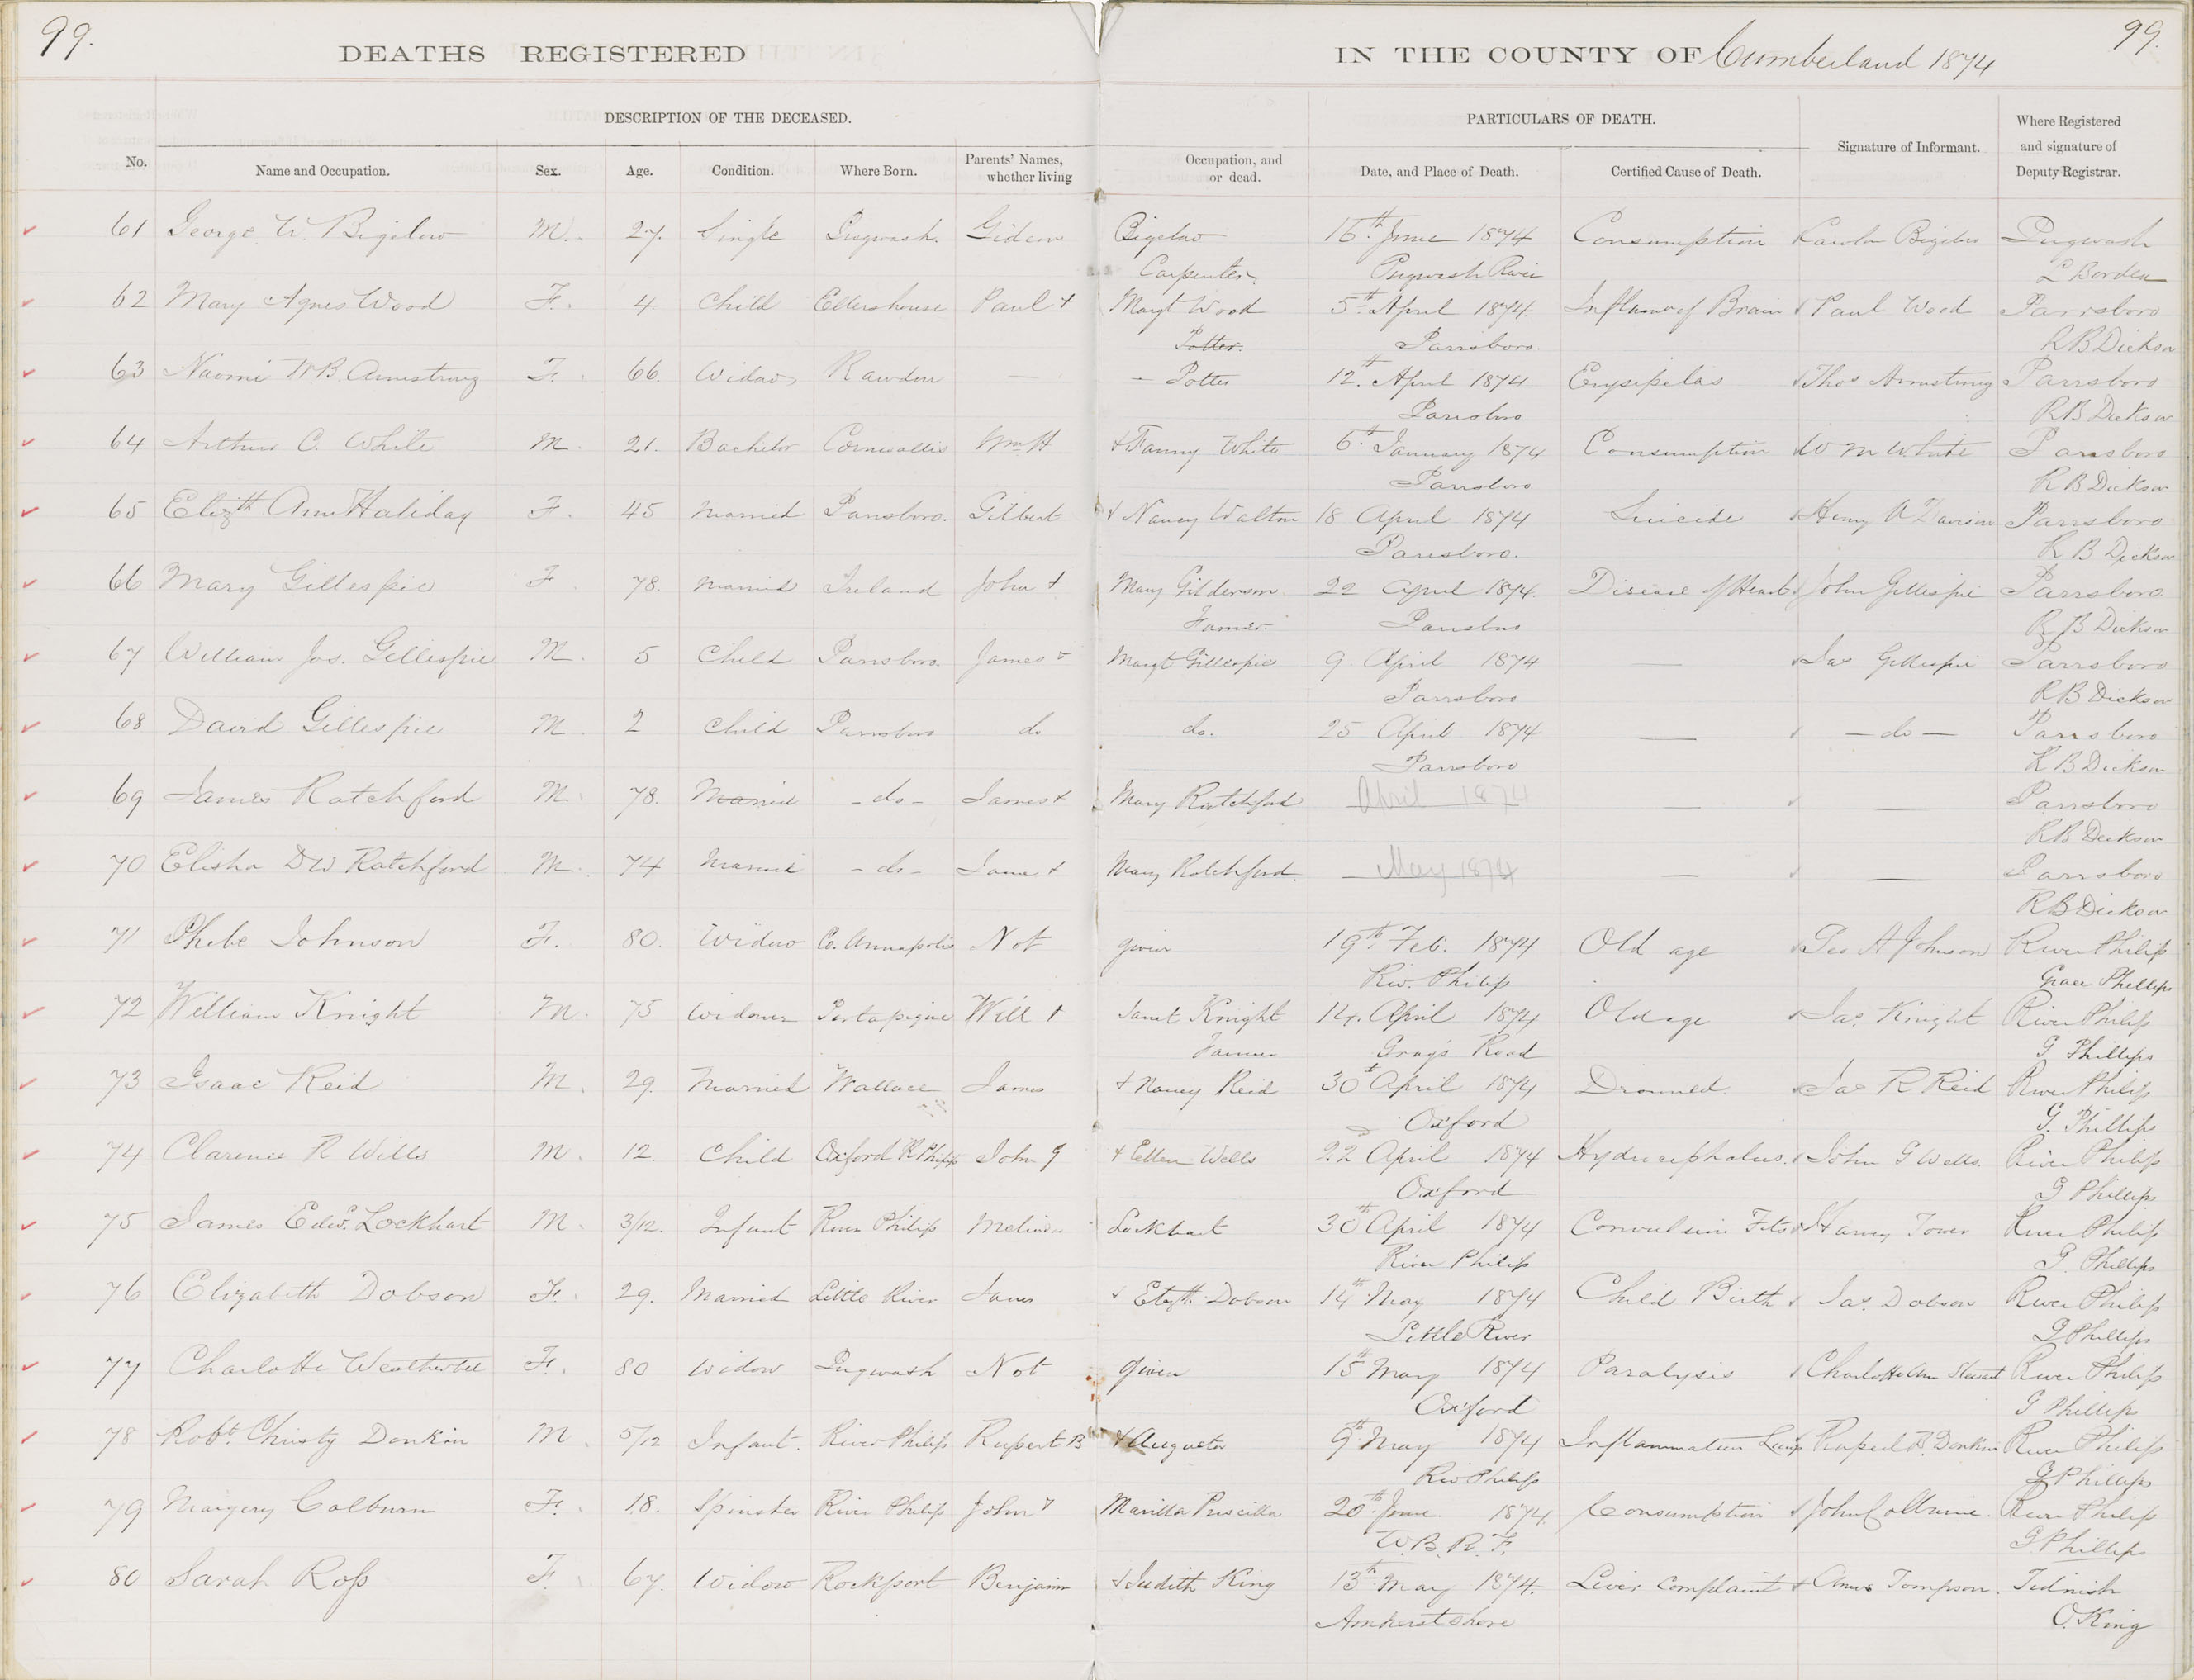 99.
DEATHS REGISTERED IN THE COUNTY OF Cumberland 1874
99.
DESCRIPTION OF THE DECEASED. PARTICULARS OF DEATH. Where Registered and signature of Deputy Registrar.
No. Name and Occupation. Sex. Age. Condition. Where Born. Parents' Names, whether living Occupation, and or dead. Date, and Place of Death. Certified Cause of Death. Signature of Informant.
61 George W. Bigelow M. 27. Single Pugwash. Gideon Bigelow 16th June 1874 Consumption Bigelow Pugwash
Carpenter Pugwash River L Borden
62 Mary Agnes Wood F. 4. Child Ellershouse Paul + Margt Wood 5th April 1874. Inflam of Brain Paul Wood Parrsboro
Potter. Parrsboro. R B Dickson
63 Naomi W B. Armstrong F. 66. Widow Rawdon — — Potter 12th April 1874 Erysipelas Thos Armstrong Parrsboro
Parrsboro R B Dickson
64 Arthur C. White M. 21. Bachelor Cornwallis Wm H + Fanny White 6th January 1874 Consumption W M White Parrsboro
Parrsboro. R B Dickson
65 Elizth Ann Haliday F. 45 Married Parrsboro. Gilbert + Nancy Walton 18 April 1874 Suicide Henry A Davison Parrsboro
Parrsboro. R B Dickson
66 Mary Gillespie F 78. Married Ireland John + Mary Gilderson 22 April 1874. Disease of Heart John Gillespie Parrsboro
Farmer. Parrsboro R B Dickson
67 William Jas. Gillespie M. 5 Child Parrsboro. James + Margt Gillespie 9. April 1874 — Jas Gillespie Parrsboro
Parrsboro R B Dickson
68 David Gillespie M. 2 Child Parrsboro do do. 25 April 1874 — — do — Parrsboro
Parrsboro R B Dickson
69 James Ratchford M. 78. Married - do - James + Mary Ratchford April 1874 — — Parrsboro
R B Dickson
70 Elisha D W Ratchford M. 74 Married - do - James + Mary Ratchford. May 1874 — — Parrsboro
R B Dickson
71 Phebe Johnson F. 80. Widow Co. Annapolis Not given 19th Feb. 1874 Old age A Johnson River Philip
Riv. Philip Grace Phillips
72 William Knight M. 75 Widower Portapique Will + Janet Knight 14. April 1874 Old age Jas. Knight River Philip
Farmer Gray's Road G Phillips
73 Isaac Reid M. 29. Married Wallace James + Nancy Reid 30th April 1874 Drowned. Jas R Reid River Philip
Oxford G. Phillips
74 Clarence R Wills M. 12. Child Oxford R Philip John G + Ellen Wells 22 April 1874 Hydrocephalus. John G Wells. River Philip
Oxford G Phillips
75 James Edwd. Lockhart M. 3/12. Infant River Philip Melinda Lockhart 30th April 1874 Convulsion Fits Harvey Tower River Philip
River Philip G. Phillips
76 Elizabeth Dobson F. 29. Married Little River James + Elizth Dobson 14th May 1874 Child Birth Jas. Dobson River Philip
Little River G Phillips
77 Charlotte Weatherbee F. 80 Widow Pugwash Not given 15th May 1874 Paralysis Charlotte Ann Stewart River Philip
Oxford G Phillips
78 Robt. Christy Donkin M. 5/12 Infant. River Philip Rupert B + Augusta 9th May 1874 Inflammation Lungs Rupert B. Donkin River Philip
Riv Philip G Phillips
79 Margery Colburn F. 18. Spinster River Philip John + Marilla Priscilla 20th June 1874. Consumption John Colburne. River Philip
W. B. R. P. G. Phillips
80 Sarah Ross F. 67. Widow Rockport Benjamin + Judith King 13th May 1874. Liver Complaint Amos Tompson. Tidnish
Amherst Shore O. King